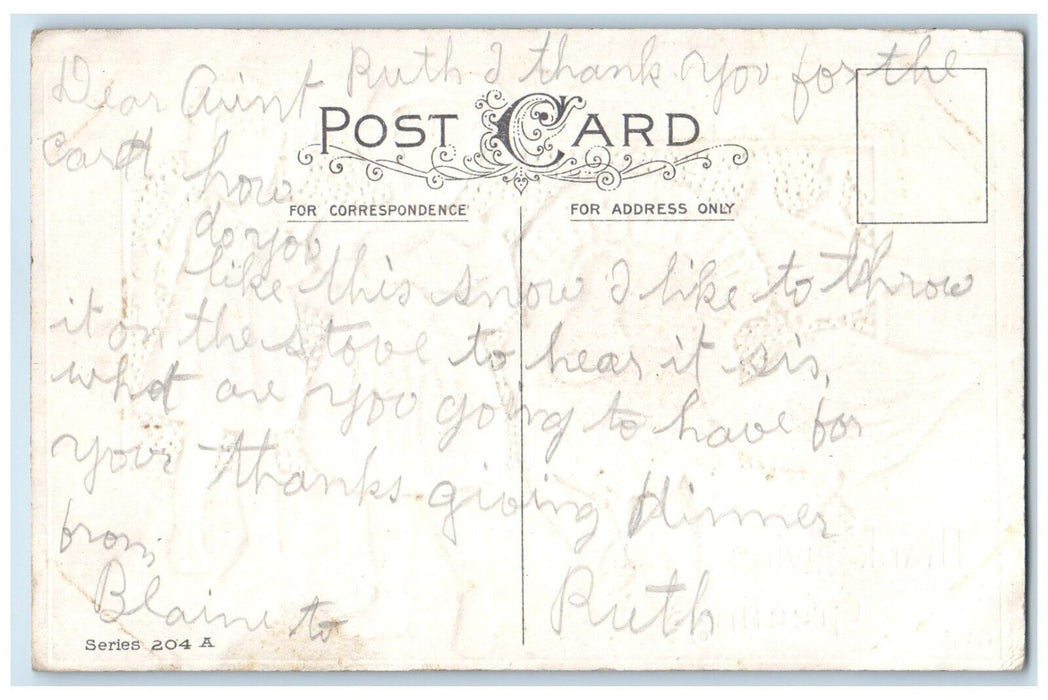 Dear Aunt Ruth I thank you for the
POST CARD
Card how
FOR CORRESPONDENCE
FOR ADDRESS ONLY
do you
like this snow I like to throw
it on the stove to hear it sis,
what are you going to have for
your thanks giving dinner
from
Blaine to Ruth
Series 204 A